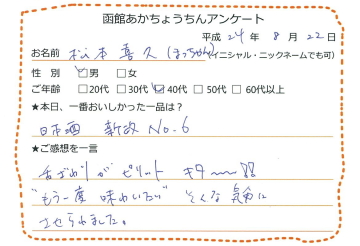 函館あかちょうちんアンケート
平成 24 年 8 月 22 日
お名前 松本 喜久 (まっちゃん) (イニシャル・ニックネームでも可)
性 別 ☑男 □女
ご年齢 □20代 □30代 ☑40代 □50代 □60代以上
★本日、一番おいしかった一品は?
日本酒 新政 No.6
★ご感想を一言
舌ざわりがピリット キタ〜〜!!
"もう一度 味わいたい" そんな気分に
させられました。